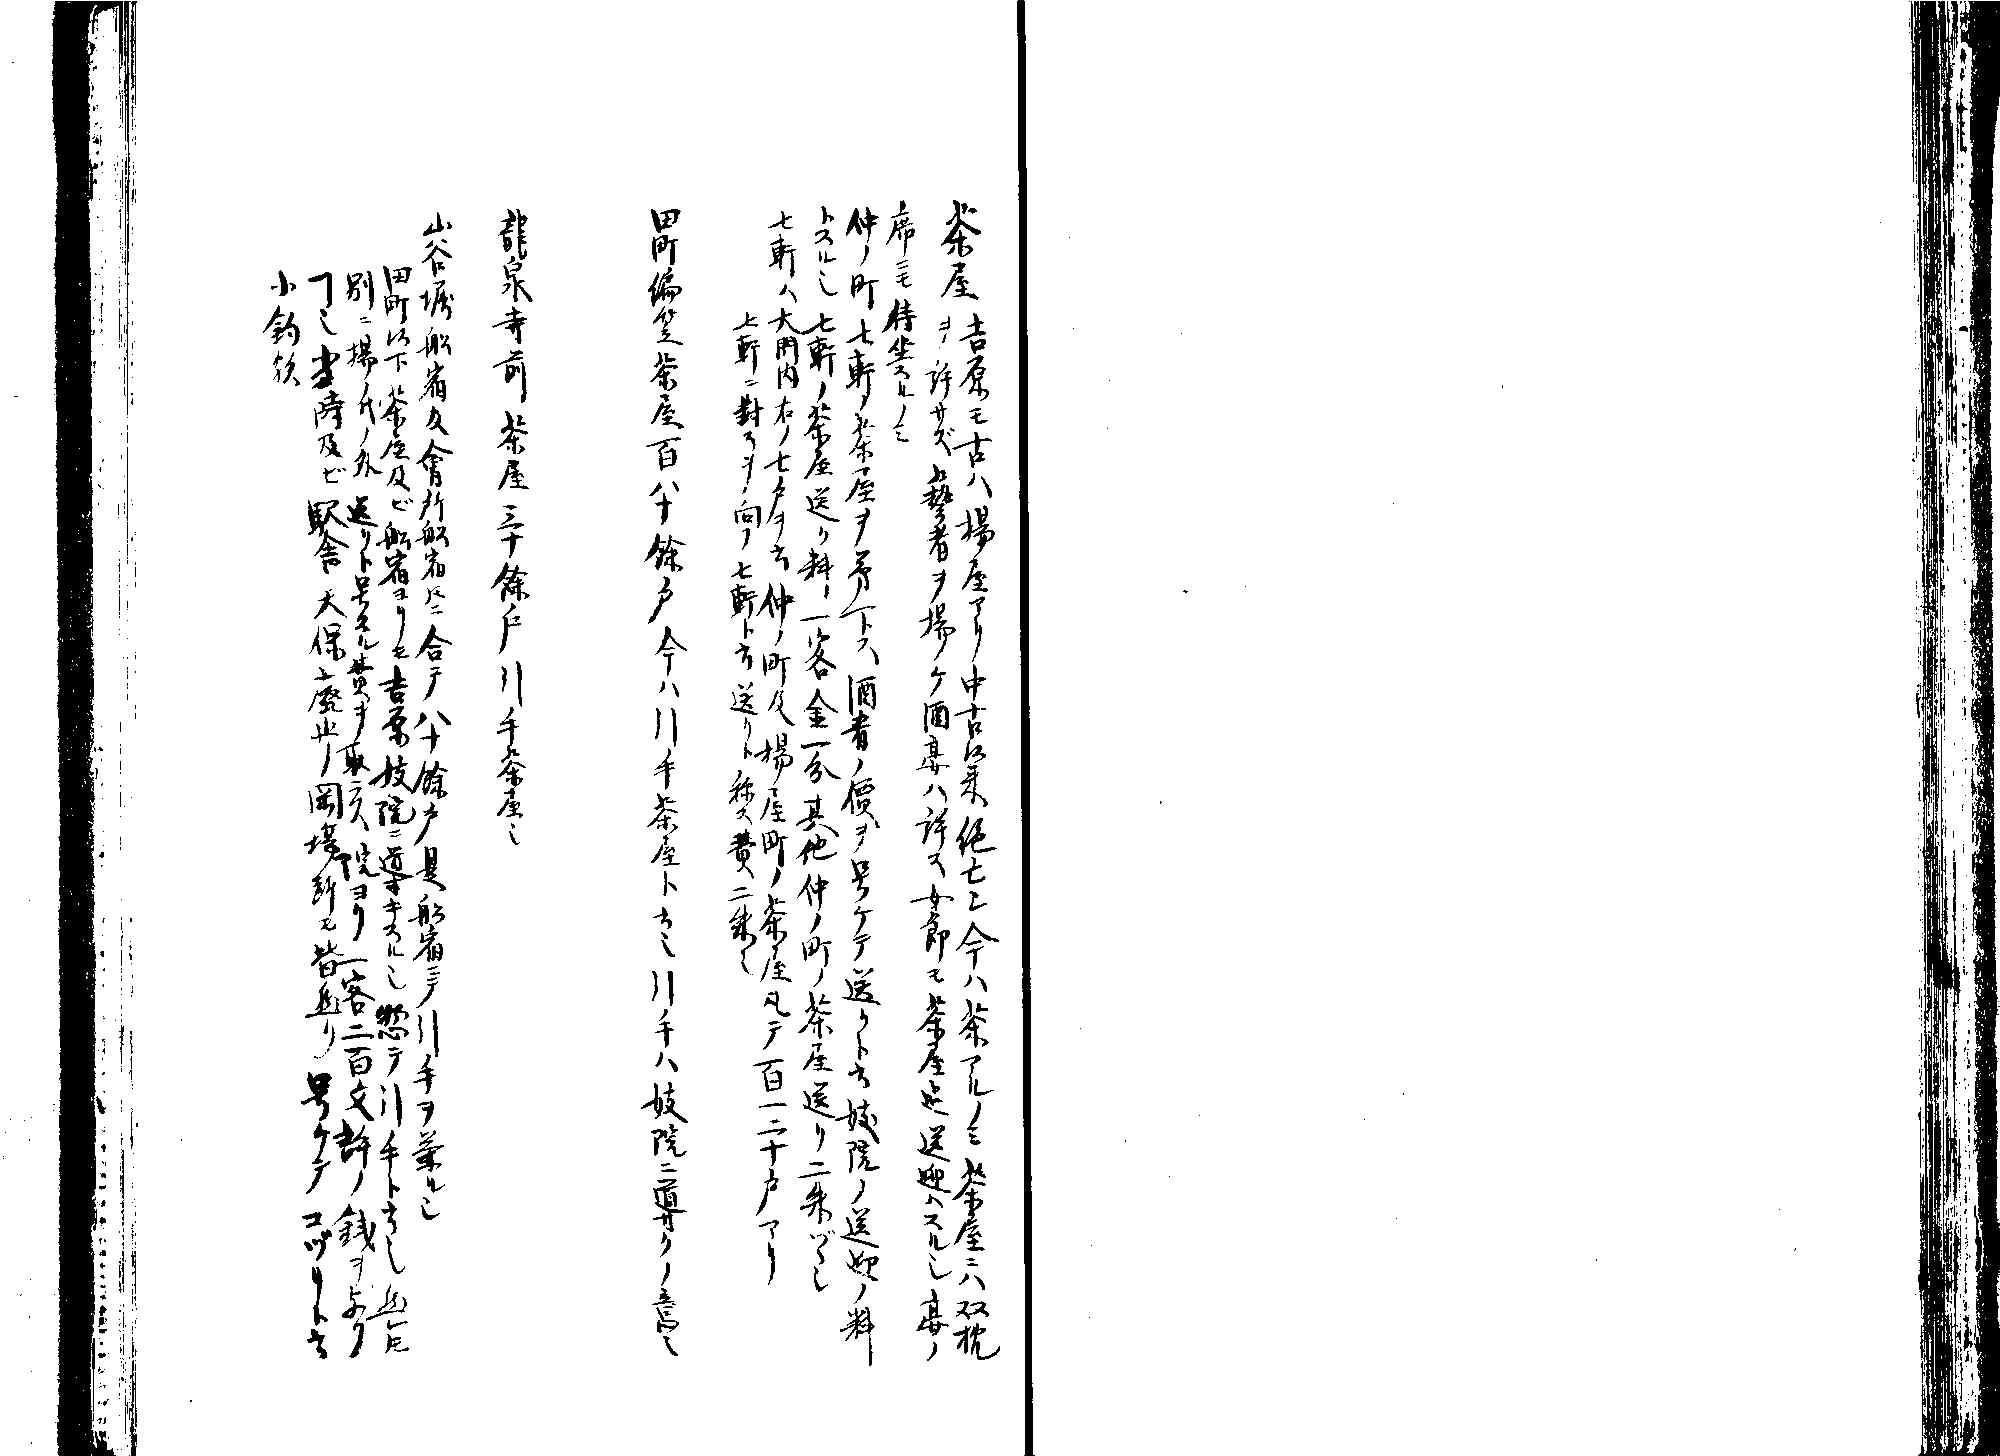 茶屋 吉原モ古ハ揚屋アリ中古以来絶亡シ今ハ茶アルノミ茶屋ニハ双枕
ヲ許サズ藝者ヲ揚ケ酒宴ハ許ス女郎モ茶屋迄送迎ハスル也宴ノ
席ニモ侍坐スルノミ
仲ノ町七軒ノ茶屋ヲ第一トス酒肴ノ價ヲ号ケテ送リト云妓院ノ送迎ノ料
トスル也七軒ノ茶屋送リ料ハ一客金一分其他仲ノ町ノ茶屋送リ二朱ヅヽ也
七軒ハ大門内右ノ七戸ヲ云仲ノ町及揚屋町ノ茶屋凡テ百一二十戸アリ
七軒ニ對スヲ向フ七軒ト云送リト称ス費二朱也
田町編笠茶屋百八十餘戸今ハ引手茶屋ト云也引手ハ妓院ニ導クノ意也
龍泉寺前茶屋三十餘戸引手茶屋也
山谷堀船宿及會所船宿トモニ合テ八十餘戸是船宿ニテ引手ヲ兼ル也
田町以下茶屋及ビ船宿ヨリモ吉原妓院ニ導キスル也惣テ引手ト云也然トモ
別ニ揚代ノ外送リト号スル費ヲ取ラス院ヨリ一客二百文許ノ銭ヲ与フ
ヿ也當時及ビ駅舎天保廃止ノ岡場所モ皆然リ号ケテコヅリト云
小釣欤